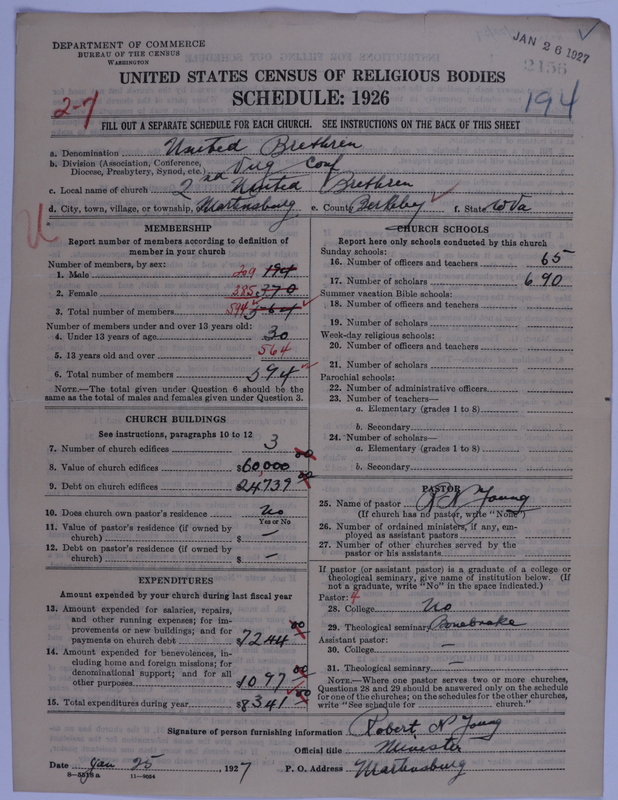 DEPARTMENT OF COMMERCE
BUREAU OF THE CENSUS
WASHINGTON
JAN 26 1927
2156
UNITED STATES CENSUS OF RELIGIOUS BODIES
SCHEDULE: 1926
2-7
194
FILL OUT A SEPARATE SCHEDULE FOR EACH CHURCH. SEE INSTRUCTIONS ON THE BACK OF THIS SHEET
a. Denomination United Brethren
b. Division (Association, Conference, Diocese, Presbytery, Synod, etc.) Virg Conf
c. Local name of church 2nd United Brethren
d. City, town, village, or township, Martinsburg e. County Berkeley f. State W Va
U
MEMBERSHIP
Report number of members according to definition of
member in your church
Number of members, by sex:
1. Male 209 194
2. Female 385 370
3. Total number of members 594 564
Number of members under and over 13 years old:
4. Under 13 years of age 30
5. 13 years old and over 564
6. Total number of members 594
NOTE.—The total given under Question 6 should be the
same as the total of males and females given under Question 3.
CHURCH BUILDINGS
See instructions, paragraphs 10 to 12
7. Number of church edifices 3
8. Value of church edifices $60,000 00
9. Debt on church edifices 24739 00
10. Does church own pastor's residence No
Yes or No
11. Value of pastor's residence (if owned by
church) $ —
12. Debt on pastor's residence (if owned by
church) $ —
EXPENDITURES
Amount expended by your church during last fiscal year
13. Amount expended for salaries, repairs,
and other running expenses; for im-
provements or new buildings; and for
payments on church debt $7244 00
14. Amount expended for benevolences, in-
cluding home and foreign missions; for
denominational support; and for all
other purposes $1097 00
15. Total expenditures during year $8341 00
CHURCH SCHOOLS
Report here only schools conducted by this church
Sunday schools:
16. Number of officers and teachers 65
17. Number of scholars 690
Summer vacation Bible schools:
18. Number of officers and teachers
19. Number of scholars
Week-day religious schools:
20. Number of officers and teachers
21. Number of scholars
Parochial schools:
22. Number of administrative officers
23. Number of teachers—
a. Elementary (grades 1 to 8)
b. Secondary
24. Number of scholars—
a. Elementary (grades 1 to 8)
b. Secondary
PASTOR
25. Name of pastor R N Young
(If church has no pastor, write "None")
26. Number of ordained ministers, if any, em-
ployed as assistant pastors
27. Number of other churches served by the
pastor or his assistants
If pastor (or assistant pastor) is a graduate of a college or
theological seminary, give name of institution below. (If
not a graduate, write "No" in the space indicated.)
Pastor: 4
28. College No
29. Theological seminary Bonebrake
Assistant pastor:
30. College —
31. Theological seminary —
NOTE.—Where one pastor serves two or more churches,
Questions 28 and 29 should be answered only on the schedule
for one of the churches; on the schedules for the other churches,
write "See schedule for church."
Signature of person furnishing information Robert N Young
Official title Minister
Date Jan 25, 1927 P. O. Address Martinsburg
8-5518a 11-9054